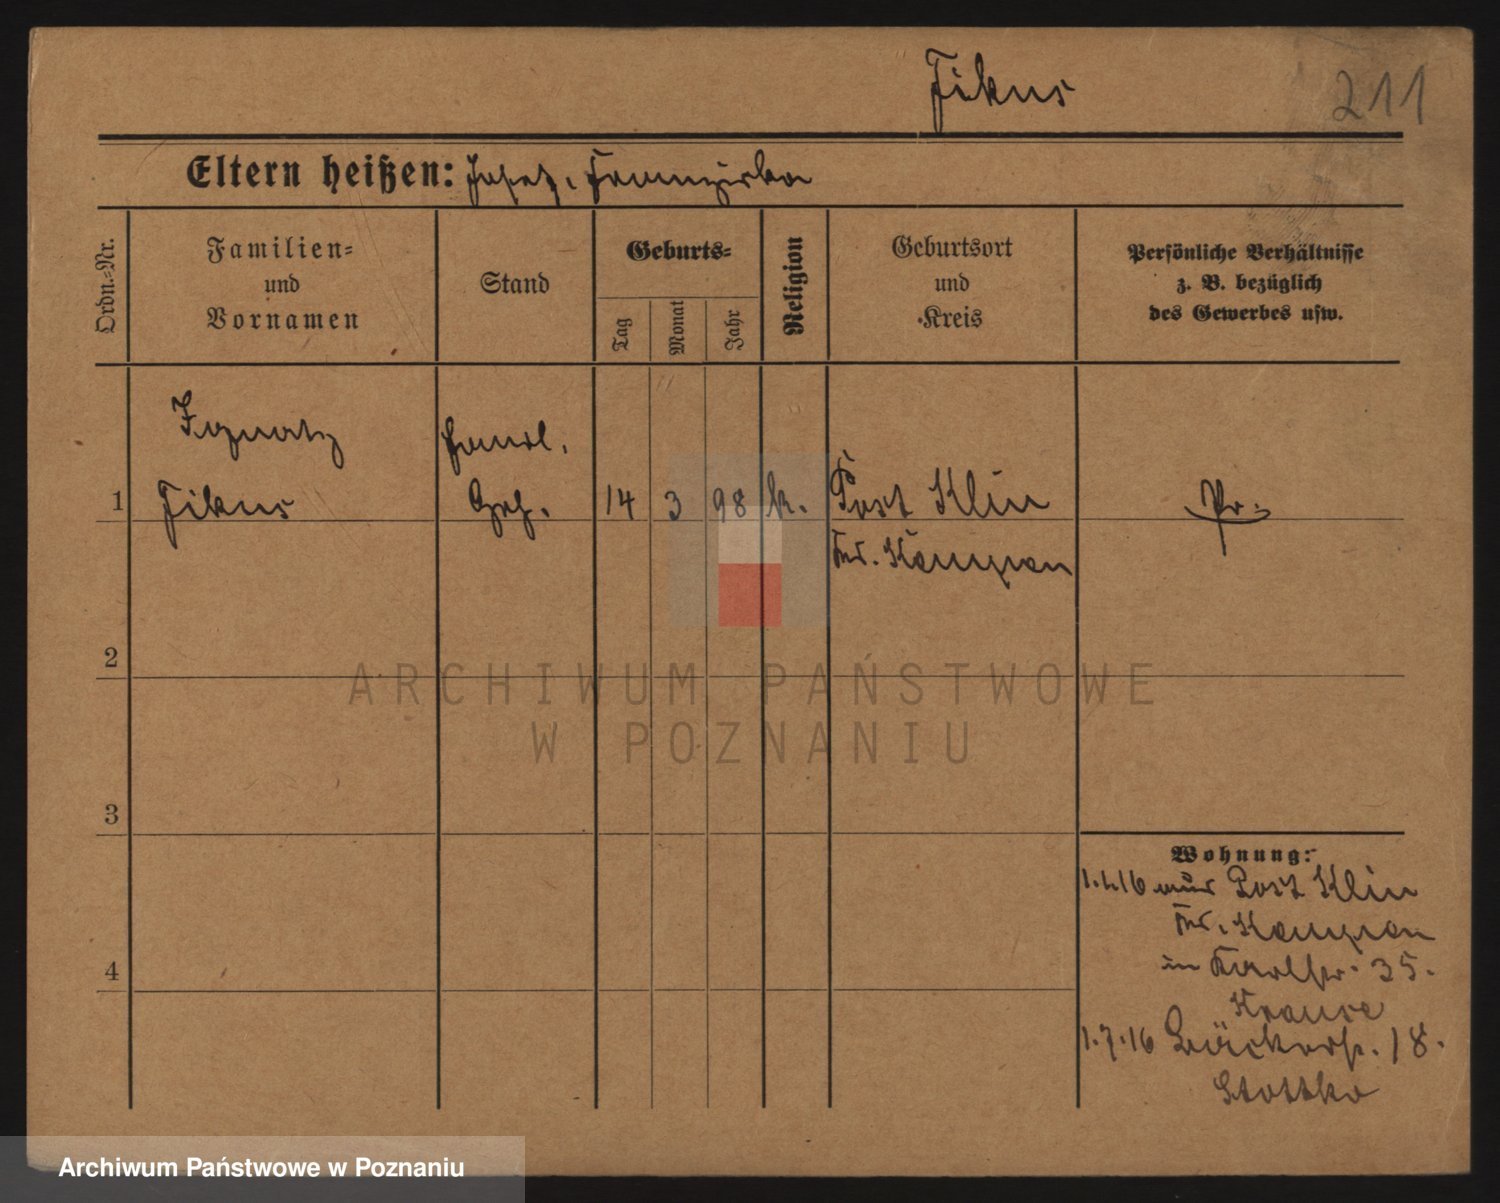 Fikus
211
Eltern heißen: Josef, Franziska
Ordn.-Nr.
Familien-
und
Vornamen
Stand
Geburts-
Tag
Monat
Jahr
Religion
Geburtsort
und
Kreis
Persönliche Verhältnisse
z. B. bezüglich
des Gewerbes usw.
Ignatz
Handl.
1 Fikus Geh. 14 3 98 k. Post Klin Pr.
Krs. Kempen
2
3
4
Wohnung:
1.4.16 aus Post Klin
Krs. Kempen
in Karlstr. 35.
Krause
1.7.16 Bäckerstr. 18.
ARCHIWUM PAŃSTWOWE
W POZNANIU
Archiwum Państwowe w Poznaniu